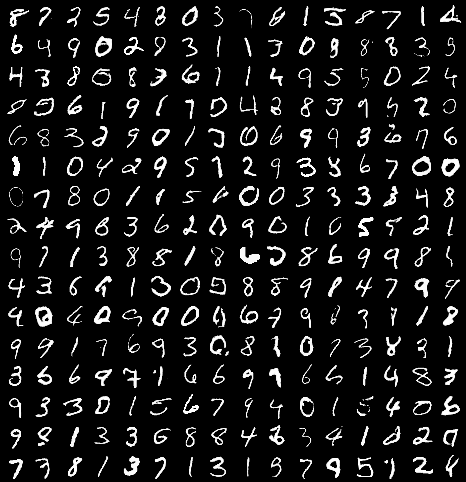 8 7 2 5 4 8 0 3 7 0 1 5 8 7 1 2
6 9 9 0 2 9 3 1 1 3 0 8 8 8 3 9
4 3 8 0 8 3 6 1 1 4 9 5 5 0 2 4
8 5 6 1 9 1 7 0 4 2 8 3 9 5 2 0
6 8 3 2 9 0 1 3 0 6 9 9 3 6 7 6
1 1 0 4 2 9 5 7 2 9 3 8 6 7 0 0
0 7 8 0 1 1 5 6 0 0 3 3 3 8 4 8
2 4 9 8 3 6 2 0 9 0 1 0 5 5 2 1
9 7 1 3 8 8 1 8 6 5 8 6 9 9 8 5
4 3 6 9 1 3 0 5 8 8 9 1 4 7 9 9
9 0 4 0 9 0 0 0 6 7 9 8 3 9 1 8
9 9 1 7 6 9 3 0 8 1 0 7 3 8 2 1
3 5 6 9 7 1 6 6 9 9 6 6 1 4 8 3
9 3 3 0 1 5 6 7 9 4 0 1 5 4 0 6
9 8 1 3 3 6 8 8 4 8 3 4 1 0 2 0
7 3 8 1 3 7 1 3 1 9 7 9 5 1 2 8